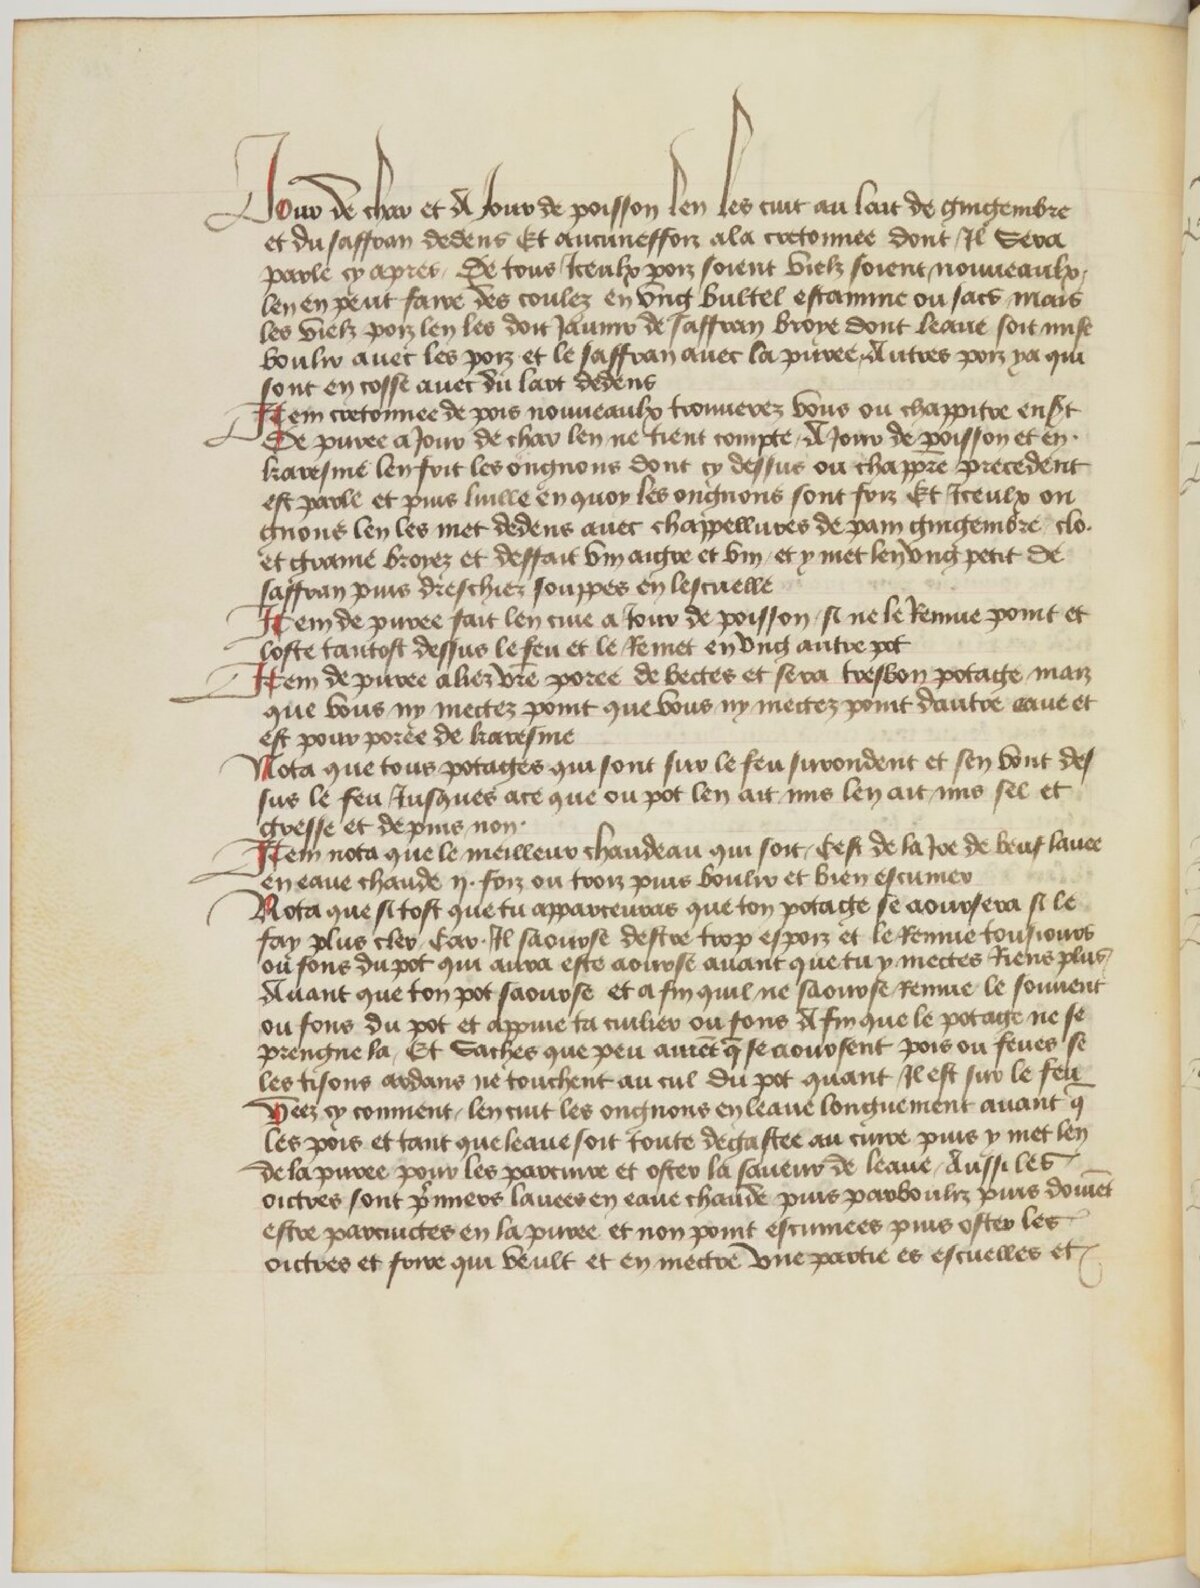 Jour de char et A Jour de poisson len les cuit au lait de gingembre
et du saffran dedens Et aucuneffoiz a la cretonnee dont Il Sera
parle cy apres De tous Iceulx poiz soient vielz soient nouveaulx
len en peut faire des coulez en vng bultel estamine ou sacs mais
les vielz poiz len les doit Jaunir de saffran broye dont leaue soit mise
boulir avec les poiz et le saffran avec la puree Autres poiz ya qui
sont en cosse avec du lart dedens
Item cretonnee de pois nouveaulx trouuerez vous ou chappitre ens
De puree a Jour de char len ne tient compte A Jour de poisson et en
karesme len frit les ongnons dont cy dessus ou chappre precedent
est parle et puis luille en quoy les ongnons sont friz Et Iceulx on
gnons len les met dedens avec chappellures de pain gingembre clo
et graine broyez et deffait vin aigre et vin et y met len vng petit de
saffran puis dreschiez souppes en lescuelle
Item de puree fait len ciue a Jour de poisson si ne le Remue point et
loste tantost dessus le feu et le Remet en vng autre pot
Item de puree aliez vre poree de bectes et sera tresbon potage maiz
que vous ny mectez point que vous ny mectez point dautre eaue et
est pour poree de karesme
Nota que tous potages qui sont sur le feu surondent et sen vont des
sus le feu Jusques ace que ou pot len ait mis len ait mis sel et
gresse et depuis non
Item nota que le meilleur chaudeau qui soit Cest de la Joe de beuf lauee
en eaue chaude ij. foiz ou troiz puis boulir et bien escumer
Nota que si tost que tu apparceuras que ton potage se aoursera si le
fay plus cler Car Il saourse destre trop espoiz et le Remue tousiours
ou fons du pot qui aura este aourse auant que tu y mectes Riens plus
Auant que ton pot saourse et a fin quil ne saourse Remue le souuent
ou fons du pot et appuie ta cuilier ou fons A fin que le potage ne se
prengne la Et Saches que peu auiet q se aoursent pois ou feues se
les tisons ardans ne touchent au cul du pot quant Il est sur le feu
Veez cy comment len cuit les ongnons en leaue longuement auant q
les pois et tant que leaue soit toute degastee au cuire puis y met len
de la puree pour les parcuire et oster la saueur de leaue Aussi les
oictres sont primiers lauees en eaue chaude puis parboulz puis doiuet
estre parcuictes en la puree et non point escumees puis oster les
oictres et frire qui veult et en mectre vne partie es escuelles et